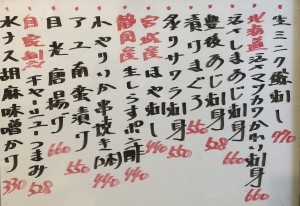 生ミンク鯨刺し 770
北海道活〆マツカワかれい刺身 660
活〆しまあじ刺身 660
豊後あじ刺身 528
漬けまぐろ 550
炙りサワラ刺身 550
宮城産ほや刺し 440
静岡産生しらすポン酢 440
小やりいか串焼き(1本)
アユ南蛮漬け 550
目光唐揚げ 660
自家製チャーシューつまみ 528
水ナス胡麻味噌かけ 330